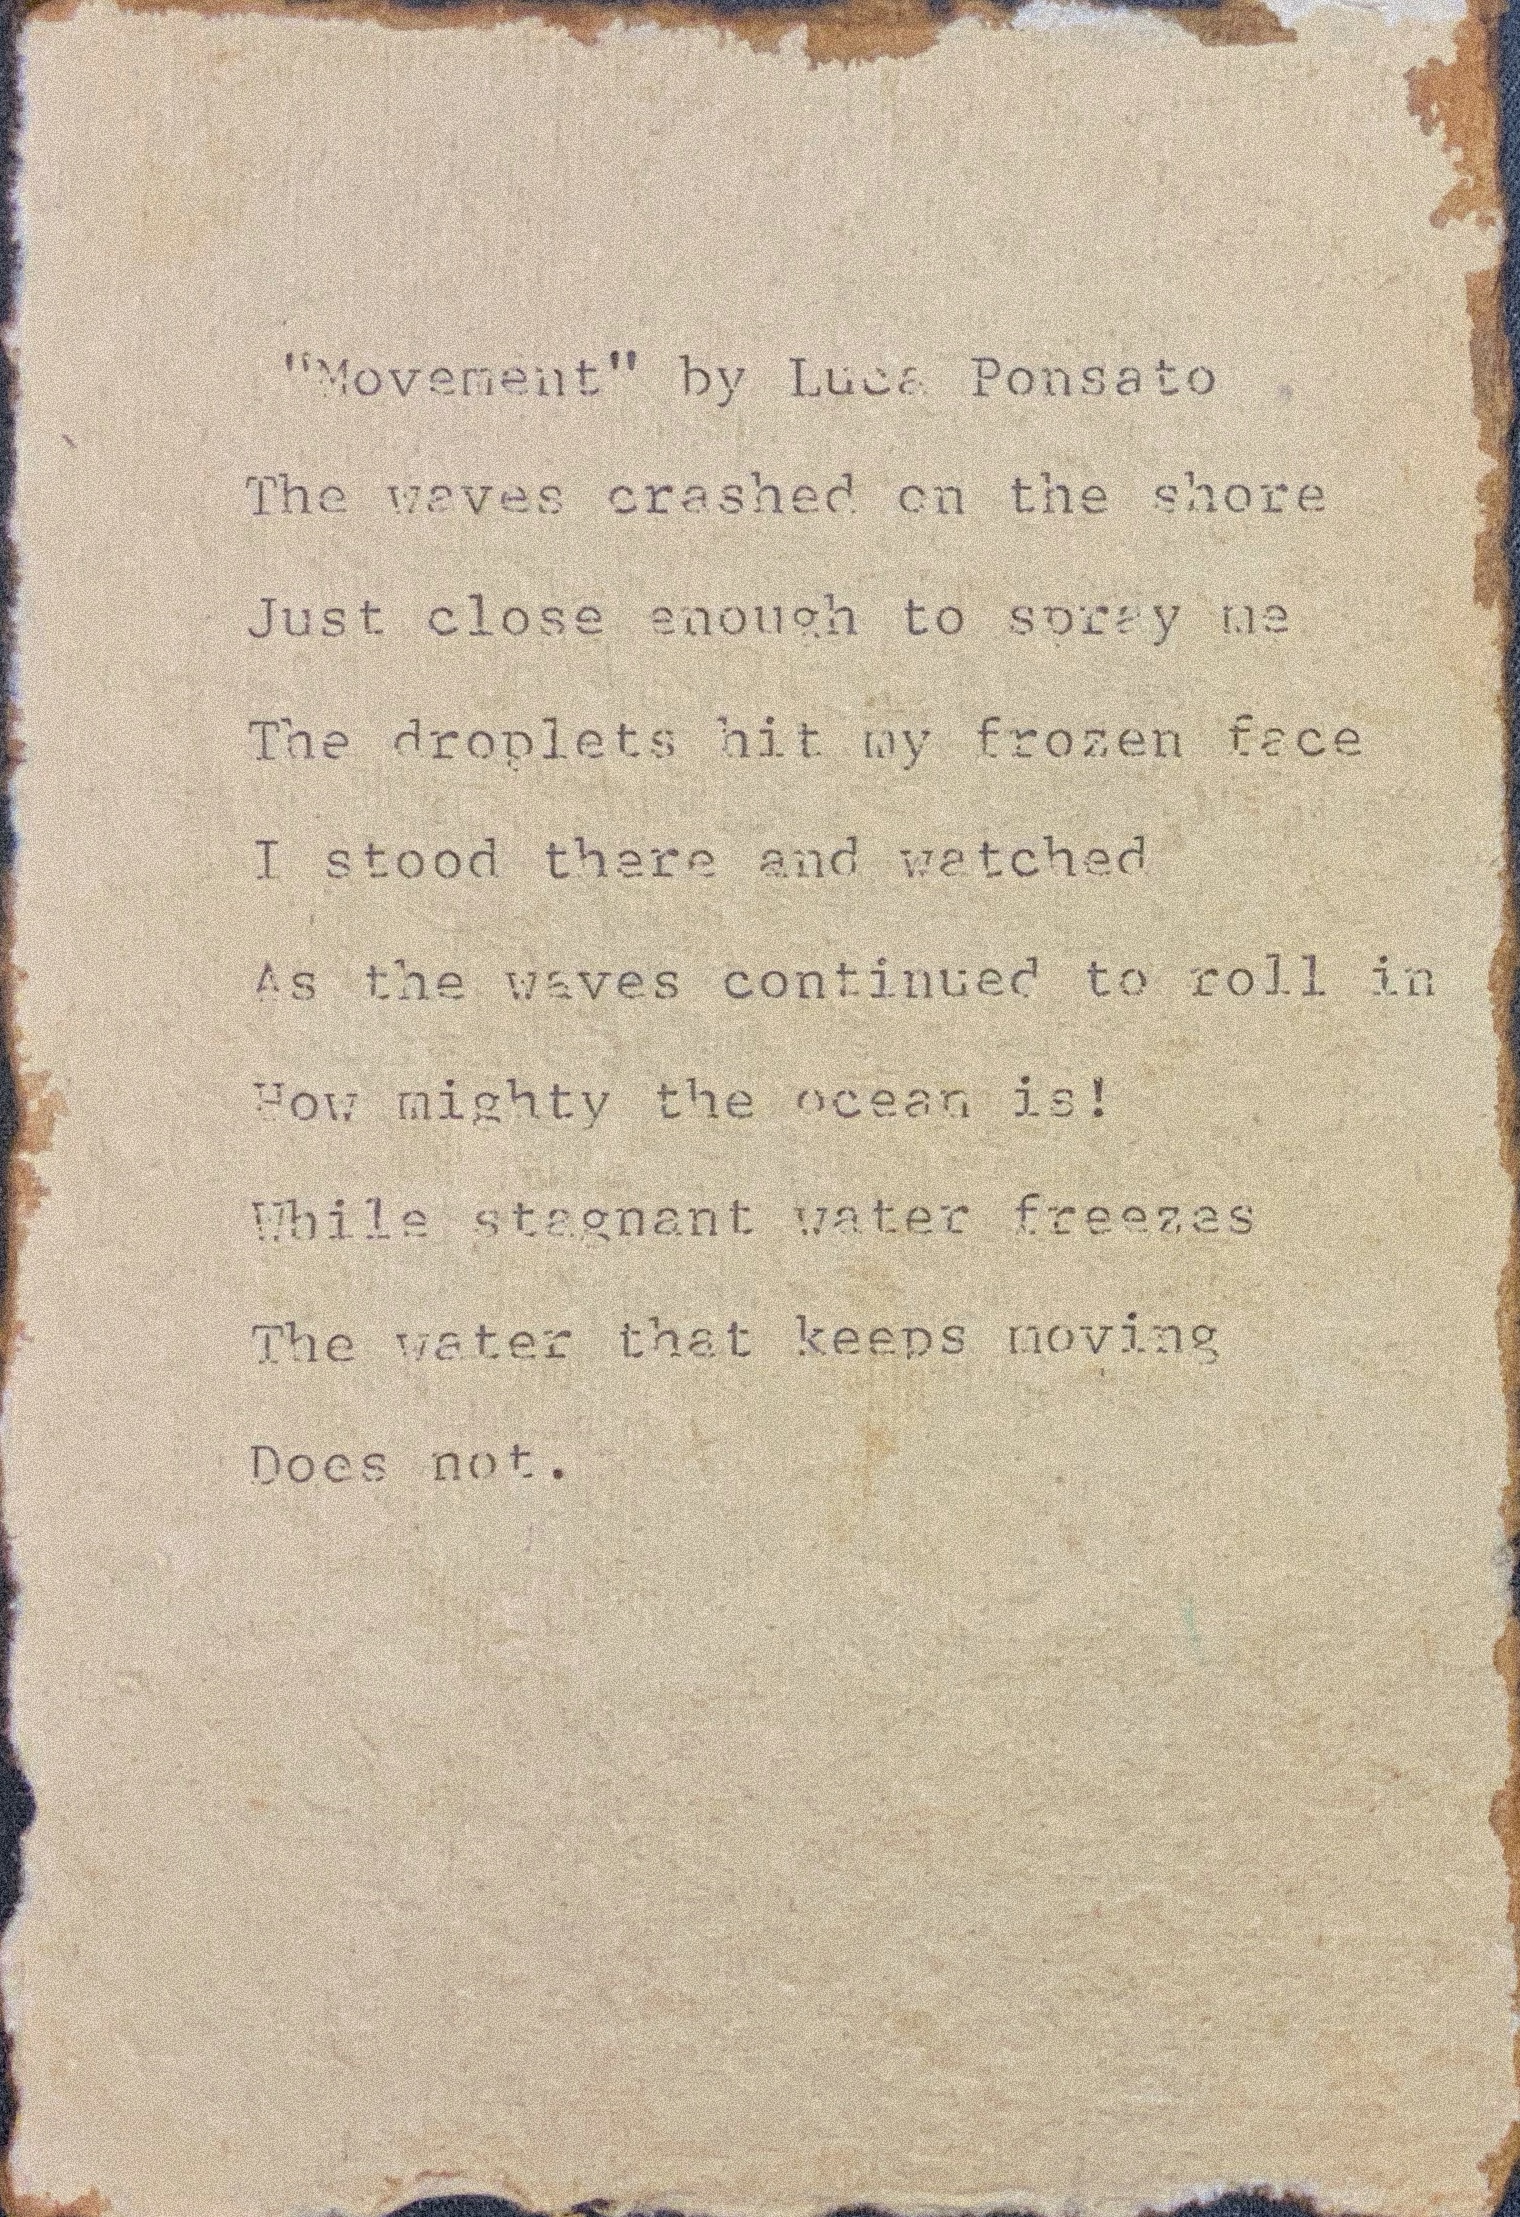 "Movement" by Luca Ponsato
The waves crashed on the shore
Just close enough to spray me
The droplets hit my frozen face
I stood there and watched
As the waves continued to roll in
How mighty the ocean is!
While stagnant water freezes
The water that keeps moving
Does not.